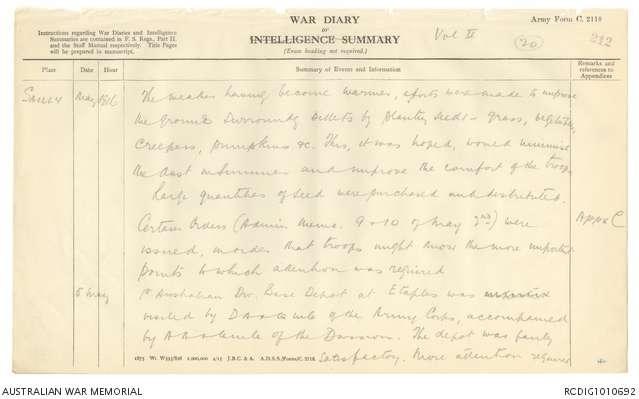 WAR DIARY
or
INTELLIGENCE SUMMARY
(Erase heading not required.)
Army Form C. 2118
Vol II
20
212
Instructions regarding War Diaries and Intelligence
Summaries are contained in F. S. Regs., Part II.
and the Staff Manual respectively. Title Pages
will be prepared in manuscript.
Place
Date
Hour
Summary of Events and Information
Remarks and
references to
Appendices
Sailly
May 1916
The weather having become warmer, efforts were made to improve
the ground surrounding billets by planting seeds - grass, vegetables,
creepers, pumpkins &c. This, it was hoped, would minimise
the dust in Summer and improve the comfort of the troops
Large quantities of seed were purchased and distributed.
Certain Orders (Admin. Memo. 9 & 10 of May 2nd) were
Appx C
issued, in order that troops might know the more important
points to which attention was required
5 May
1st Australian Div. Base Depot at Etaples was
visited by D.A.A.&.Q.M.G of the Army Corps, accompanied
by A.A.&.Q.M.G of the Division. The depot was fairly
satisfactory. More attention required
1875 Wt. W593/826 1,000,000 4/15 J.B.C. & A. A.D.S.S./Forms/C. 2118.
AUSTRALIAN WAR MEMORIAL
RCDIG1010692